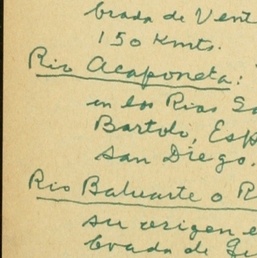 brada de Vent
150 Kmts.
Rio Acaponeta:
en los Rios Sa
Bartolo, Esp
san Diego.
Rio Baluarte o R
su origen e
brada de Gu